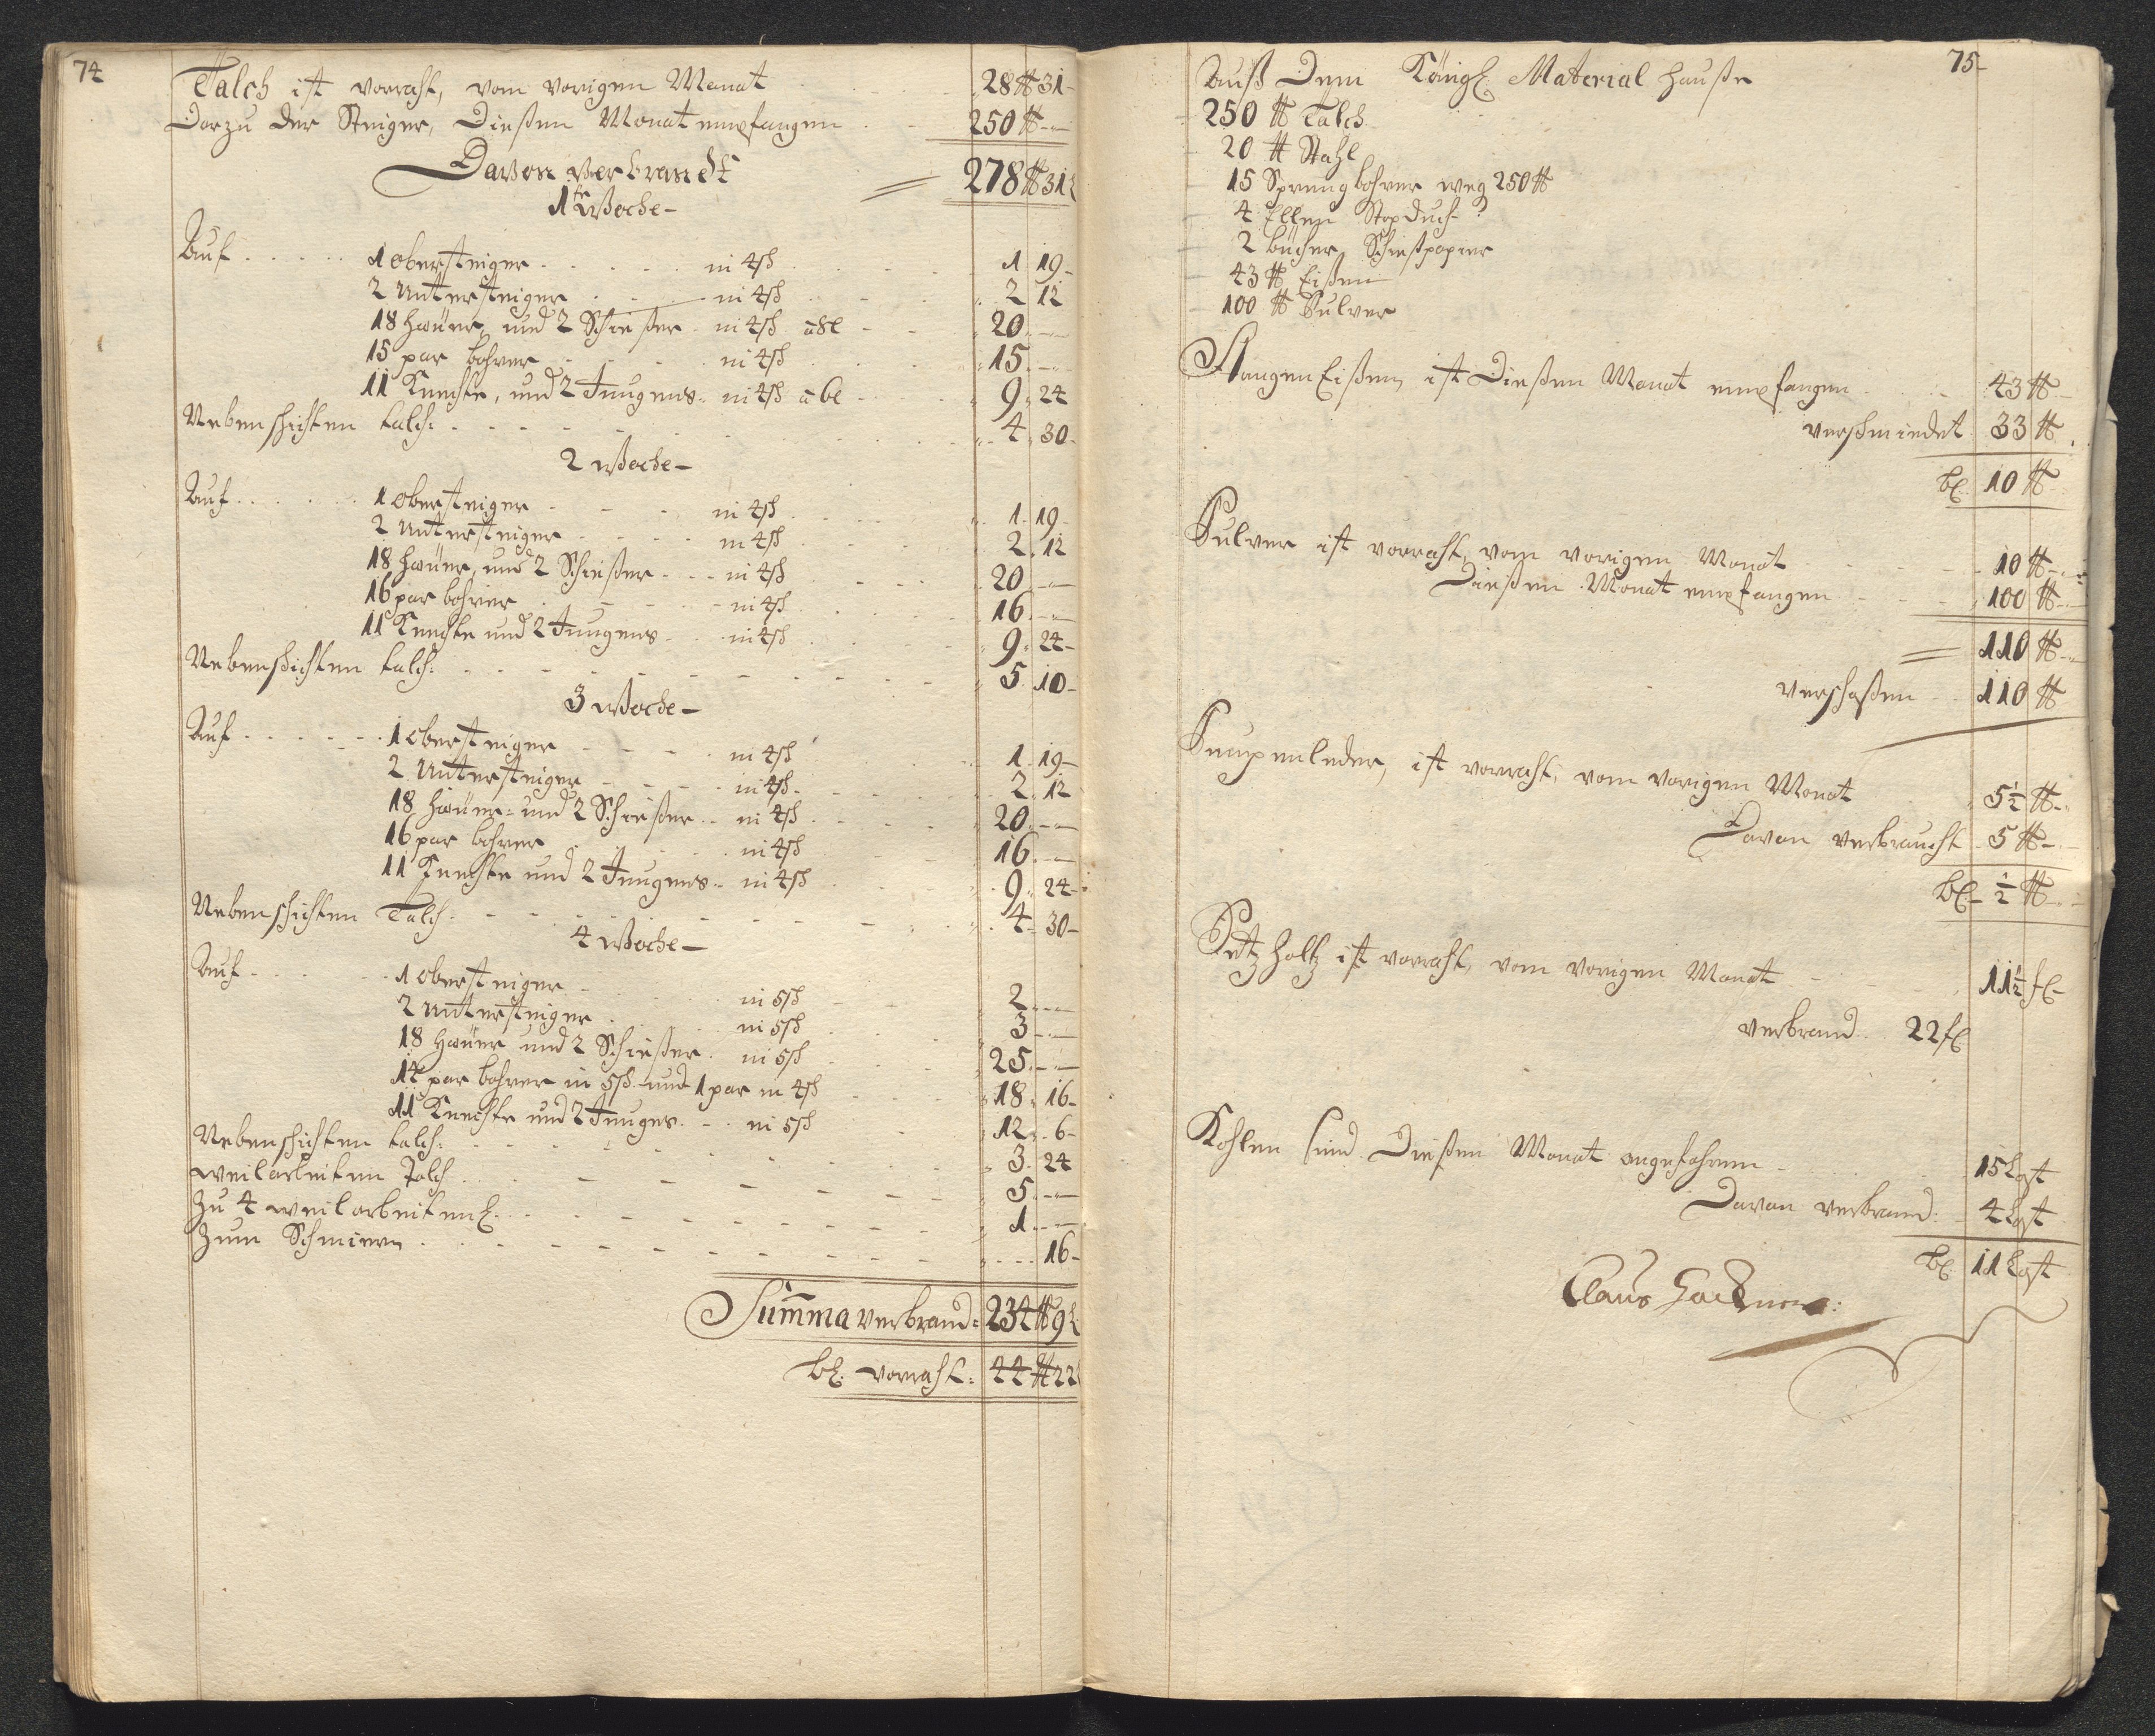 74
Talch ist vorraht, vom vorigen Monat 28 ℔ 31
Darzu der Steiger, Dießen Monat empfangen 250 ℔
Davon verbrandt 278 ℔ 31 L
1te Woche
Auf 1 obersteiger in 4 sch 1 19
2 Untersteiger in 4 sch 2 12
18 Häuer, und 2 Schießer in 4 sch à 8 l 20
15 par bohrer in 4 sch 15
11 Knechte, und 2 Jungens in 4 sch à 6 l 9 24
Nebenschichten talch: 4 30
2 Woche
Auf 1 obersteiger in 4 sch 1 19
2 Untersteiger in 4 sch 2 12
18 Häuer, und 2 Schießer in 4 sch 20
16 par bohrer in 4 sch 16
11 Knechte und 2 Jungens in 4 sch 9 24
Nebenschichten talch: 5 10
3 Woche
Auf 1 obersteiger in 4 sch 1 19
2 Untersteiger in 4 sch 2 12
18 Häuer und 2 Schießer in 4 sch 20
16 par bohrer in 4 sch 16
11 Knechte und 2 Jungens in 4 sch 9 24
Nebenschichten Talch 4 30
4 Woche
Auf 1 obersteiger in 5 sch 2
2 Untersteiger in 5 sch 3
18 Häuer und 2 Schießer in 5 sch 25
14 par bohrer in 5 sch und 1 par in 4 sch 18 16
11 Knechte und 2 Junges in 5 sch 12 6
Nebenschichten talch: 3 24
weilarbeiten Talch 5
Zu 4 weilarbeiten 1
Zum Schmieren 16
Summa verbrand: 234 ℔ 9 L
bl. vorraht: 44 ℔ 22
75
Auß Dem Königl. Material Hauße
250 ℔ Talch
20 ℔ Stahl
15 Sprengbohrer weg 250 ℔
4 Ellen Stopduch
2 bücher Schießpapier
43 ℔ Eißen
100 ℔ Pulver
Stangen Eißen, ist Dießen Monat empfangen 43 ℔
verschmiedet 33 ℔
bl. 10 ℔
Pulver ist vorraht, vom vorigen Monat 10 ℔
Dießen Monat empfangen 100 ℔
110 ℔
verschoßen 110 ℔
Pumpenleder, ist vorraht, vom vorigen Monat 5½ ℔
Davon verbraucht 5 ℔
bl. ½ ℔
Setz holtz ist vorraht, vom vorigen Monat 11½ fl
verbrand 22 fl
Kohlen sind Dießen Monat angefahren 15 Last
Davon verbrand 4 Last
bl. 11 Last
Claus